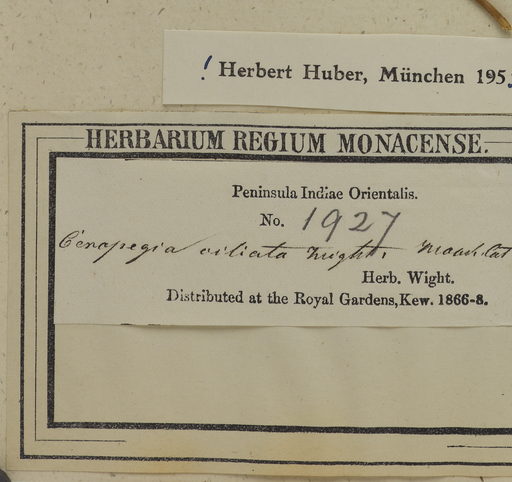 ! Herbert Huber, München 195
HERBARIUM REGIUM MONACENSE.
Peninsula Indiae Orientalis.
No. 1927
Ceropegia ciliata Wight.
Herb. Wight.
Distributed at the Royal Gardens, Kew. 1866-8.